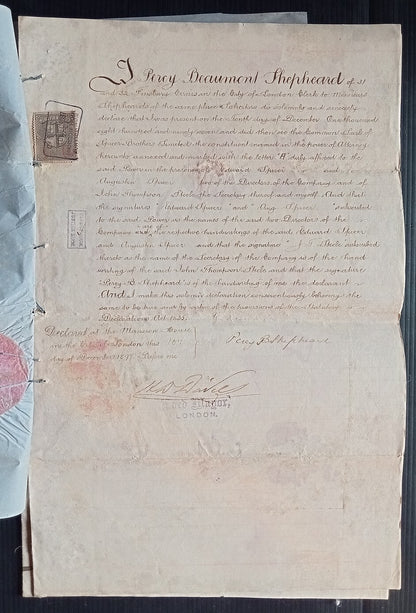 I Percy Beaumont Shepheard of 31
and 32 Finsbury Circus in the City of London Clerk to Messieurs
Shepheards of the same place Solicitors do solemnly and sincerely
declare that I was present on the Tenth day of December One thousand
eight hundred and ninety seven and did then see the Common Seal of
Spicer Brothers Limited the constituent named in the Power of Attorney
hereunto annexed and marked with the letter duly affixed to the
said Power in the presence of Edward Spicer and
Augustus Spicer two of the Directors of the Company and of
John Thompson Steele the Secretary thereof and myself And that
the signatures "Edward Spicer" and "Aug Spicer" subscribed
to the said Power as the names of the said two Directors of the
Company are of the respective handwritings of the said Edward Spicer
and Augustus Spicer and that the signature "J. T. Steele" subscribed
thereto as the name of the Secretary of the Company is of the hand
writing of the said John Thompson Steele and that the signature
"Percy B Shepheard" is of the handwriting of me the declarant
And I make this solemn declaration conscientiously believing the
same to be true and by virtue of the provisions of the Statutory
Declarations Act 1835.
Declared at the Mansion House
in the City of London this 10th
day of December 1897 Before me
Percy B Shepheard
Lord Mayor,
LONDON.